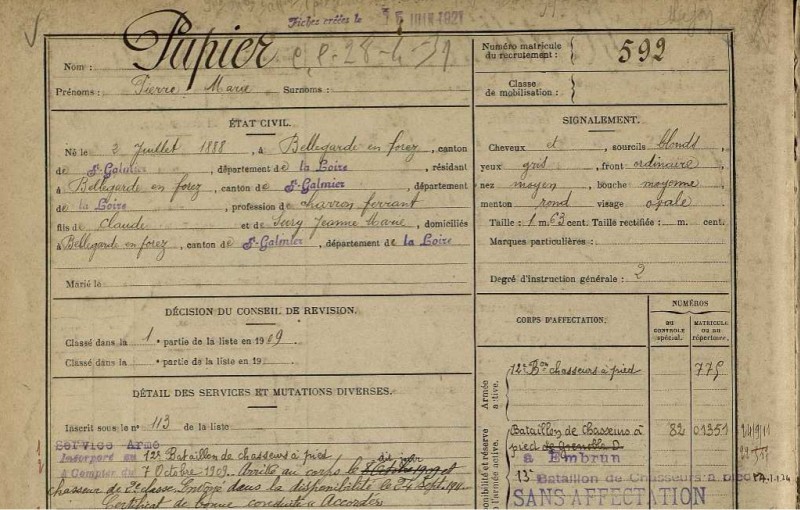 Fiches créées le 15 JUIN 1921
Nom : Papier
Prénoms : Pierre Marie Surnoms :
Numéro matricule du recrutement : 592
Classe de mobilisation :
ÉTAT CIVIL.
Né le 3 Juillet 1888, à Bellegarde en forez, canton
de St-Galmier, département de la Loire, résidant
à Bellegarde en forez, canton de St-Galmier, département
de la Loire, profession de charron ferrant
fils de Claude et de Jeanne Marie, domiciliés
à Bellegarde en forez, canton de St-Galmier, département de la Loire
Marié le
SIGNALEMENT.
Cheveux et sourcils blonds
yeux gris, front ordinaire
nez moyen, bouche moyenne
menton rond visage ovale
Taille : 1 m. 63 cent. Taille rectifiée : m. cent.
Marques particulières :
Degré d'instruction générale : 2
DÉCISION DU CONSEIL DE REVISION.
Classé dans la 1e partie de la liste en 1909
Classé dans la e partie de la liste en 19
DÉTAIL DES SERVICES ET MUTATIONS DIVERSES.
Inscrit sous le n° 113 de la liste
Service Armé
Incorporé au 12e Bataillon de chasseurs à pied
à Compter du 7 Octobre 1909. Arrivé au corps le dit jour
chasseur de 2e classe. Envoyé dans la disponibilité le 24 Sept. 1911.
Certificat de bonne conduite "Accordé"
CORPS D'AFFECTATION.
NUMÉROS
DU CONTROLE spécial.
MATRICULE ou au répertoire.
Armée active.
12e Bon chasseurs à pied 775
Disponibilité et réserve de l'armée active.
Bataillon de Chasseurs à 82 01351
pied de Grenoble
à Embrun
13e Bataillon de Chasseurs à pied
SANS AFFECTATION